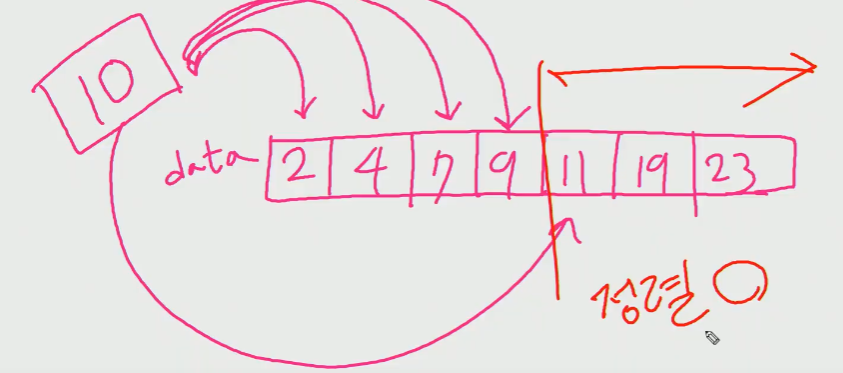 10
data 2 4 7 9 11 19 23
정렬 O